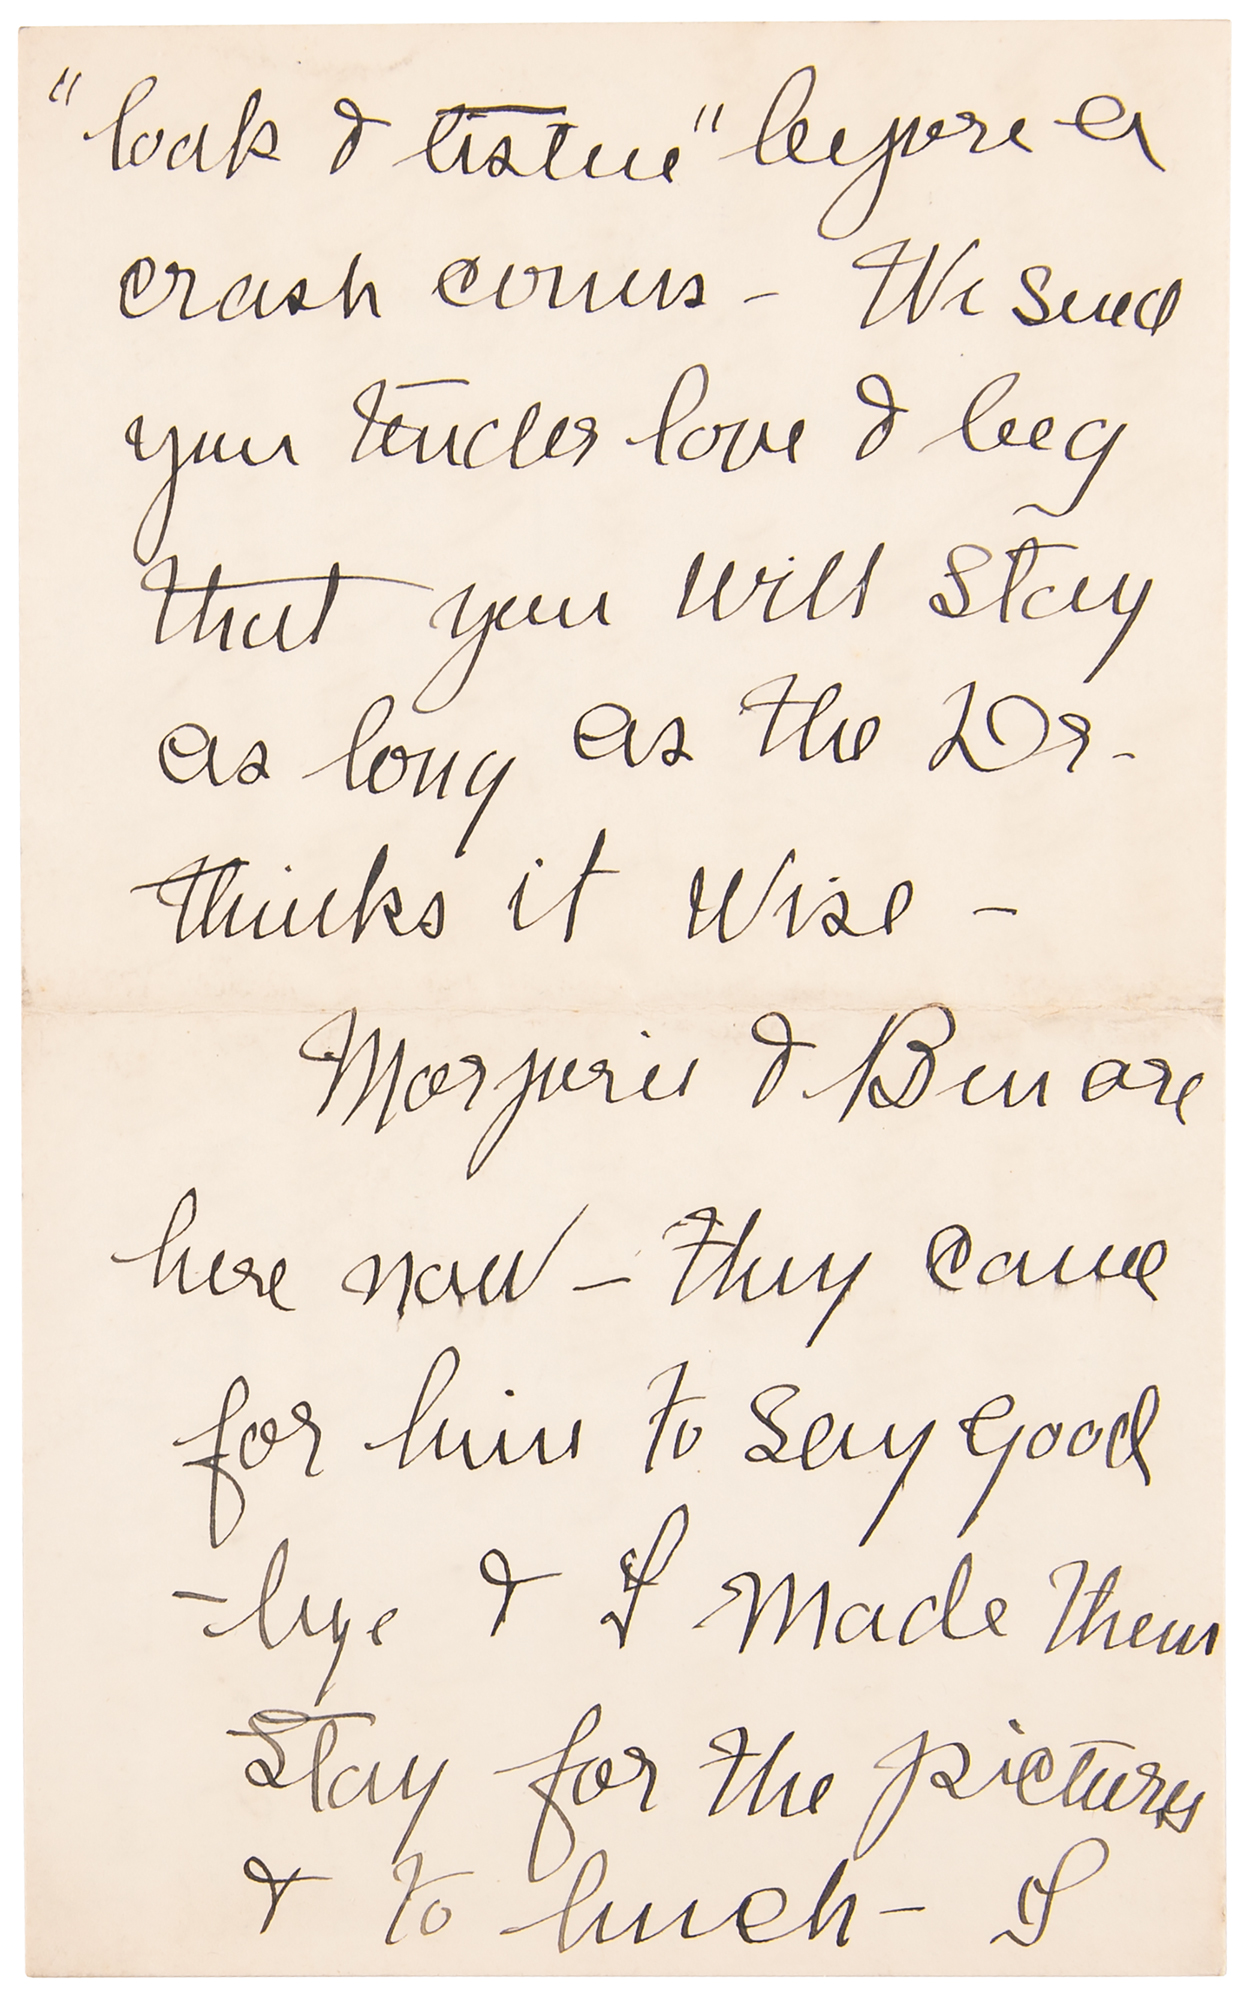 "look & listen" before a
crash comes - We send
you tender love & beg
that you will stay
as long as the Dr-
thinks it wise -
Marjorie & Ben are
here now - they came
for him to say good
-bye & I made them
stay for the pictures
& to lunch - I